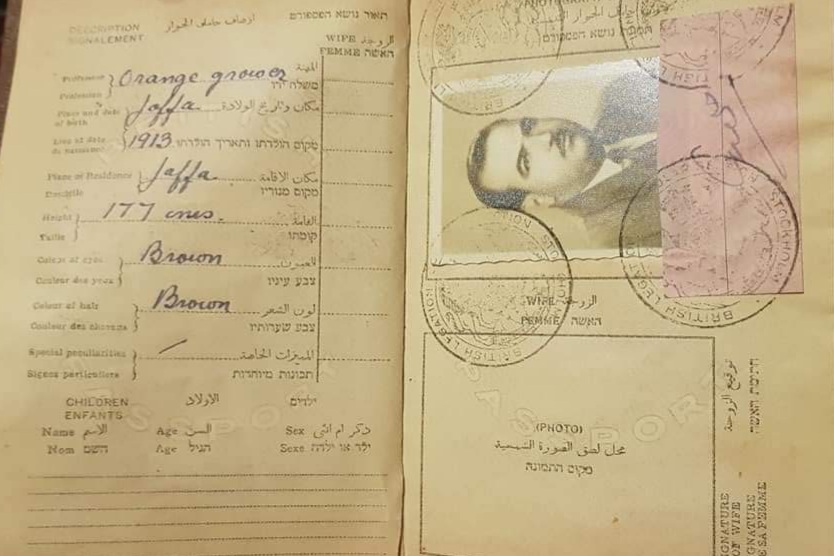 DESCRIPTION اوصاف حامل الجواز תאור נושא הפספורט
SIGNALEMENT
WIFE الزوجة
FEMME האשה
Profession } Orange grower المهنة
Profession משלח ידו
Place and date of birth } Jaffa مكان وتاريخ الولادة
Lieu et date de naissance } 1913 מקום הולדתו ותאריך הולדתו
Place of Residence } Jaffa مكان الاقامة
Domicile מקום מגוריו
Height } 177 cms. القامة
Taille קומתו
Colour of eyes } Brown العيون
Couleur des yeux צבע עיניו
Colour of hair } Brown لون الشعر
Couleur des cheveux צבע שערותיו
Special peculiarities } / المميزات الخاصة
Signes particuliers תכונות מיוחדות
CHILDREN الاولاد ילדים
ENFANTS
Name الاسم Age السن Sex ذكر ام انثى
Nom השם Age הגיל Sexe ילד או ילדה
PASSPORT
BRITISH LEGATION
STOCKHOLM
BRITISH LEGATION
BRITISH LEGATION
STOCKHOLM
WIFE الزوجة
FEMME האשה
(PHOTO)
محل لصق الصورة الشمسية
מקום התמונה
PASSPORT
توقيع الزوجة
חתימת האשה
SIGNATURE OF WIFE
SIGNATURE DE SA FEMME